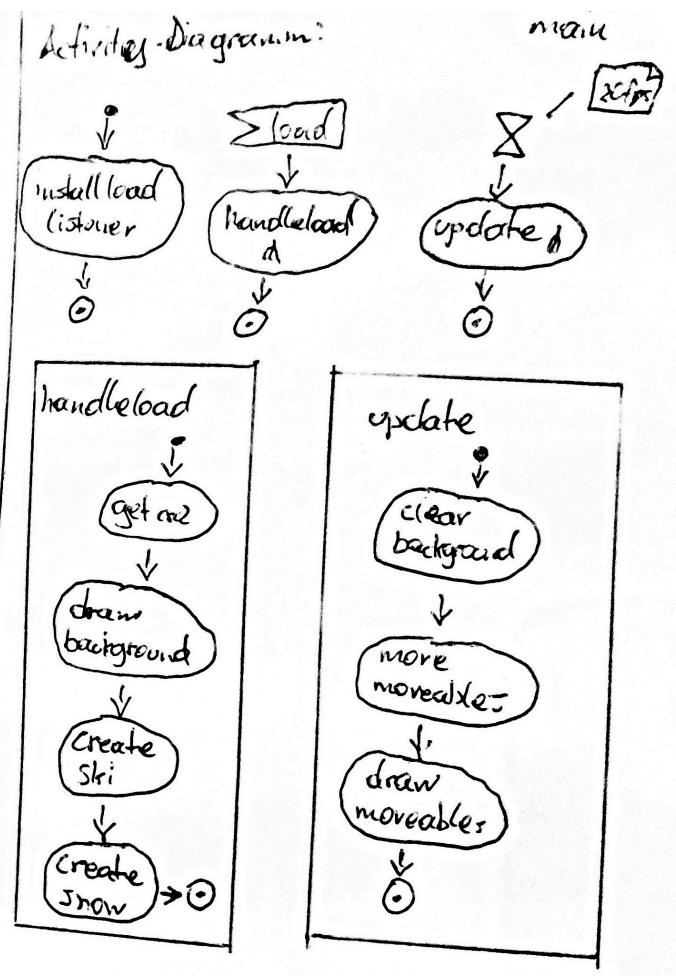 Activity-Diagramm:
main
load
install load
listener
handleload
update
handleload
get
draw
background
create
Ski
create
snow
update
clear
background
move
moveables
draw
moveables